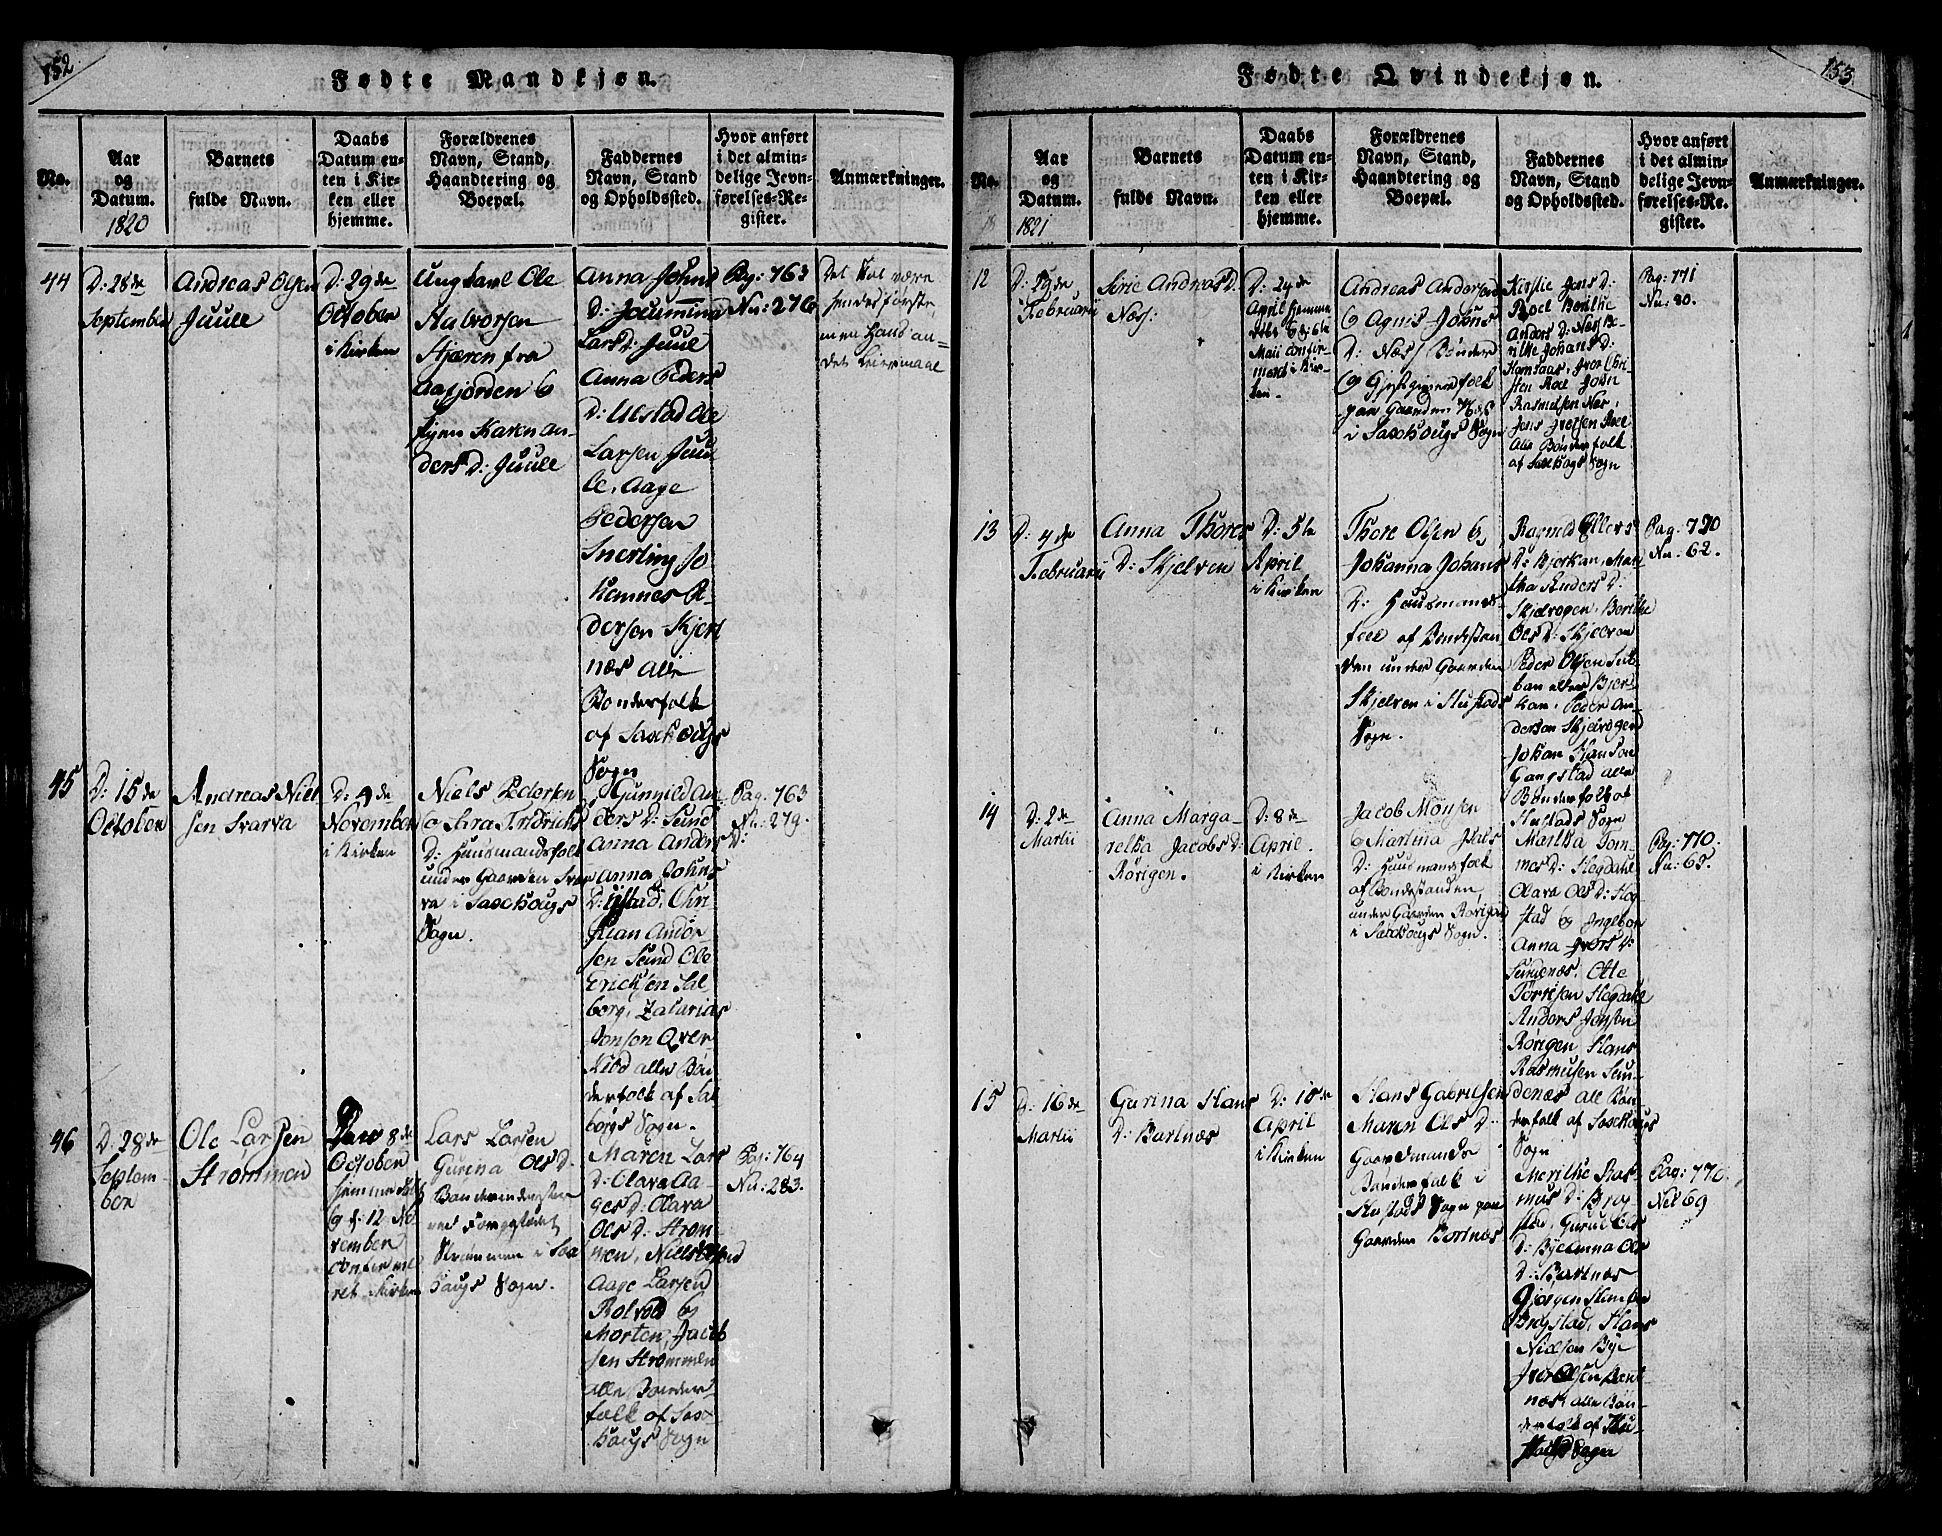 152
Fødte Mandkjøn.
No.
Aar
og
Datum.
1820
Barnets
fulde Navn.
Daabs
Datum en-
ten i Kir-
ken eller
hjemme.
Forældrenes
Navn, Stand,
Haandtering og
Boepæl.
Faddernes
Navn, Stand
og Opholdssted.
Hvor anført
i det almin-
delige Jevn-
førelses-Re-
gister.
Anmærkninger.
44
D: 28de
September
Andreas Olsen
Juule
D: 29de
October
i Kirken
Ungkarl Ole
Halvorsen
Stjæren fra
Aafjorden og
Karen An-
ders D: Juule
Anna Johns
D:
Lars D: Juul
Anna Peders
D: Ulstad Ole
Larsen Juu
le, Aage
Pedersen
Snerting Jo
hannes
dersen Kjer
næs alle
Bønderfolk
af Saxhougs
Sogn
Pag: 763
Nu: 276
Det skal være
hendes første,
men hans an-
det Leiermaal
45
D: 15de
October
Andreas Niel
sen Svarva
D: 4de
November
i Kirken
Niels Pedersen
og Sara Fridrichs
D: Huusmandsfolk
under Gaarden Svar
va i Saxhougs
Sogn.
Gunnild An
ders D: Sund
Anna Anders
D:
Anna Johns
D: Ystad, Chri-
stian Ander-
sen Sund Ole
Ericksen Sal-
berg, Zakarias
Jonsen Over-
alle Bøn
derfolk af Sal
bergs Sogn.
Pag. 763
Nu: 279.
46
D: 28de
Septem-
ber
Ole Larsen
Strømmen
Den 8de
October
hjemmedøbt
og d: 12 No
vember
confirme
ret i Kirken
Lars Larsen
Gurina Ols D:
Strømmen i Sax
hougs Sogn.
Maren Lars
D: Olava Aa-
ges D: Olava
Ols D: Strøm
men, Niels
Aage Larsen
Rolvold og
Morten Jacob
sen Strømmen
alle Bønder-
folk af Sax-
hougs Sogn
Pag: 764
Nu: 283.
153
Fødte Qvindekjøn.
No.
18
Aar
og
Datum.
1821
Barnets
fulde Navn.
Daabs
Datum en-
ten i Kir-
ken eller
hjemme.
Forældrenes
Navn, Stand,
Haandtering og
Boepæl.
Faddernes
Navn, Stand
og Opholdssted.
Hvor anført
i det almin-
delige Jevn-
førelses-Re-
gister.
Anmærkninger.
12
Februarii
Sirie Andreas D.
Næs:
D: 24de
April hjemme
døbt og d: 6te
Maii confir-
mert i Kir-
ken.
Andreas Andersen
og Agnis Johns
D: Næs / Bønder
og Gjestgiverfolk
paa Gaarden Næs
i Saxhougs Sogn
Kirstie Jens D:
Roel Berithe
Anders D: Næs Be-
rithe Johans D:
Hamsaas, Iver Chri-
sten Roel John
Rasmusen Næs,
Jens Iversen Roel
Alle Bønderfolk
af Saxhougs Sogn
Pag: 771
Nu: 80.
13
D: 4de
Februarii
Anna Thores
D: Skjelven
D: 5te
April
i Kirken
Thore Olsen og
Johanna Johans
D: Huusmands-
folk af Bondestan
den under Gaarden
Skjelven i Hustads
Sogn.
Ragnild Ellers
D: Bjerkan, Mar
tha Anders D:
Skjelvagen, Berithe
Ols D: Skjelven
Peder Olsen
Bjer-
kan, Peder An-
dersen Skjelvagen
Johan Hansen
Gangstad alle
Bønderfolk af
Hustads Sogn
Pag. 770
Nu: 62.
14
D: 2de
Martii
Anna Marga-
retha Jacobs D:
Rørigen.
D: 8de
April.
i Kirken
Jacob Monsen
og Martina
D: Huusmandsfolk
af Bondestanden
under Gaarden Rørigen
i Saxhougs Sogn.
Martha Tom-
mes D: Hogdahl
Olava Ols D: Hog
stad og Ingebor
Anna Ivers D:
Sundnæs, Otte
Torresen Hogdahl
Anders Jensen
Rørigen Hans
Rasmusen Sun-
denæs alle Bøn-
derfolk af Saxhougs
Sogn
Pag: 770.
Nu: 65.
15
D: 16de
Martii
Gurina Hans
D: Bartnæs
D: 15de
April
i Kirken
Hans Gabrielsen
Maren Ols D:
Gaardmands
Bønderfolk i
Hustads Sogn paa
Gaarden Bartnæs
Merithe Ras-
mus D: Bryg
stad, Guruе Ols
D: Bye Anna Ols
D: Bartnæs
Jørgen
Brygstad, Hans
Nielsen Bye
Iver Olsen Bart
næs alle Bøn-
derfolk af Hu-
stads Sogn
Pag: 770.
No: 69